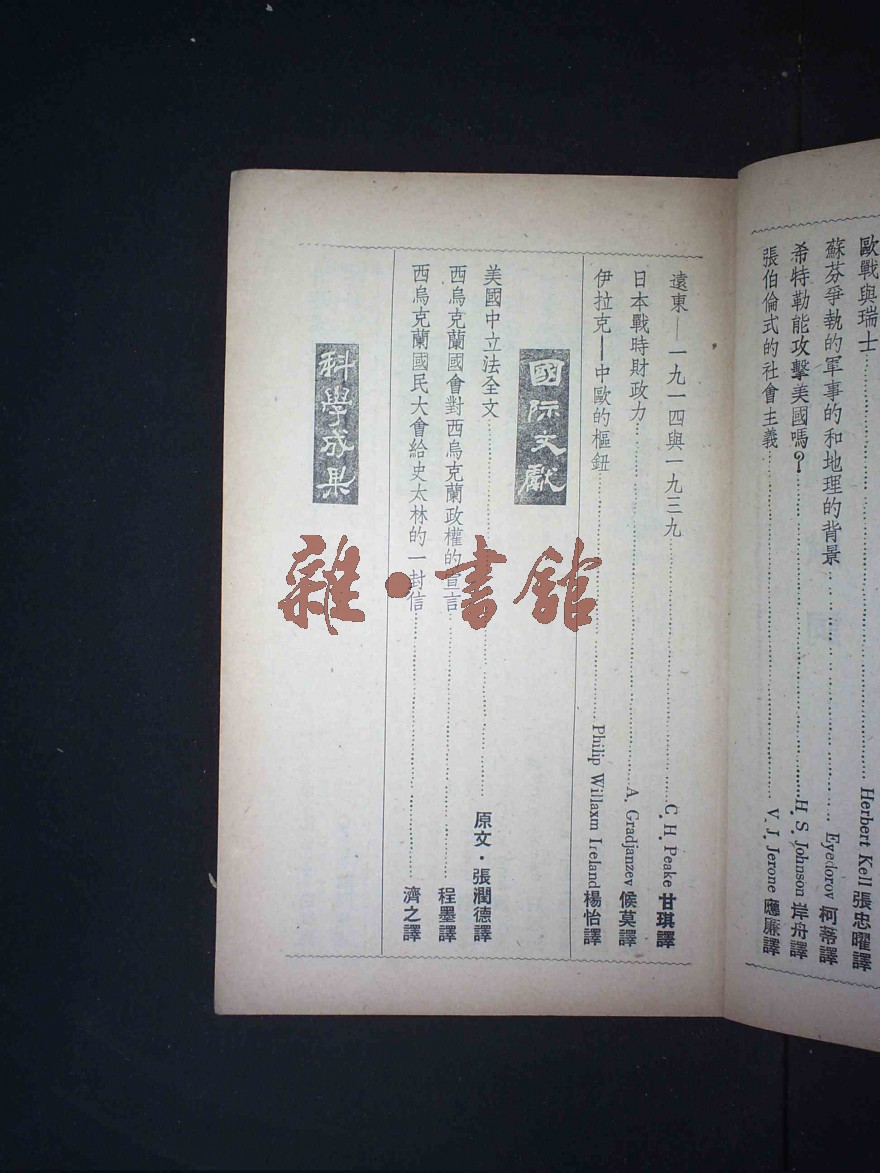 歐戰與瑞士……Herbert Kell 張忠曜譯
蘇芬爭執的軍事的和地理的背景……Eyedorov 柯蒂譯
希特勒能攻擊美國嗎？……H. S. Johnson 岸舟譯
張伯倫式的社會主義……V. J. Jerone 應廉譯
遠東—一九一四與一九三九……C. H. Peake 甘琪譯
日本戰時財政力……A. Gradjanzev 候莫譯
伊拉克—中歐的樞鈕……Philip Willaxm Ireland 楊怡譯
國际文獻
美國中立法全文……原文·張潤德譯
西烏克蘭國會對西烏克蘭政權的宣言……程墨譯
西烏克蘭國民大會給史太林的一封信……濟之譯
科學成果
雜·書館